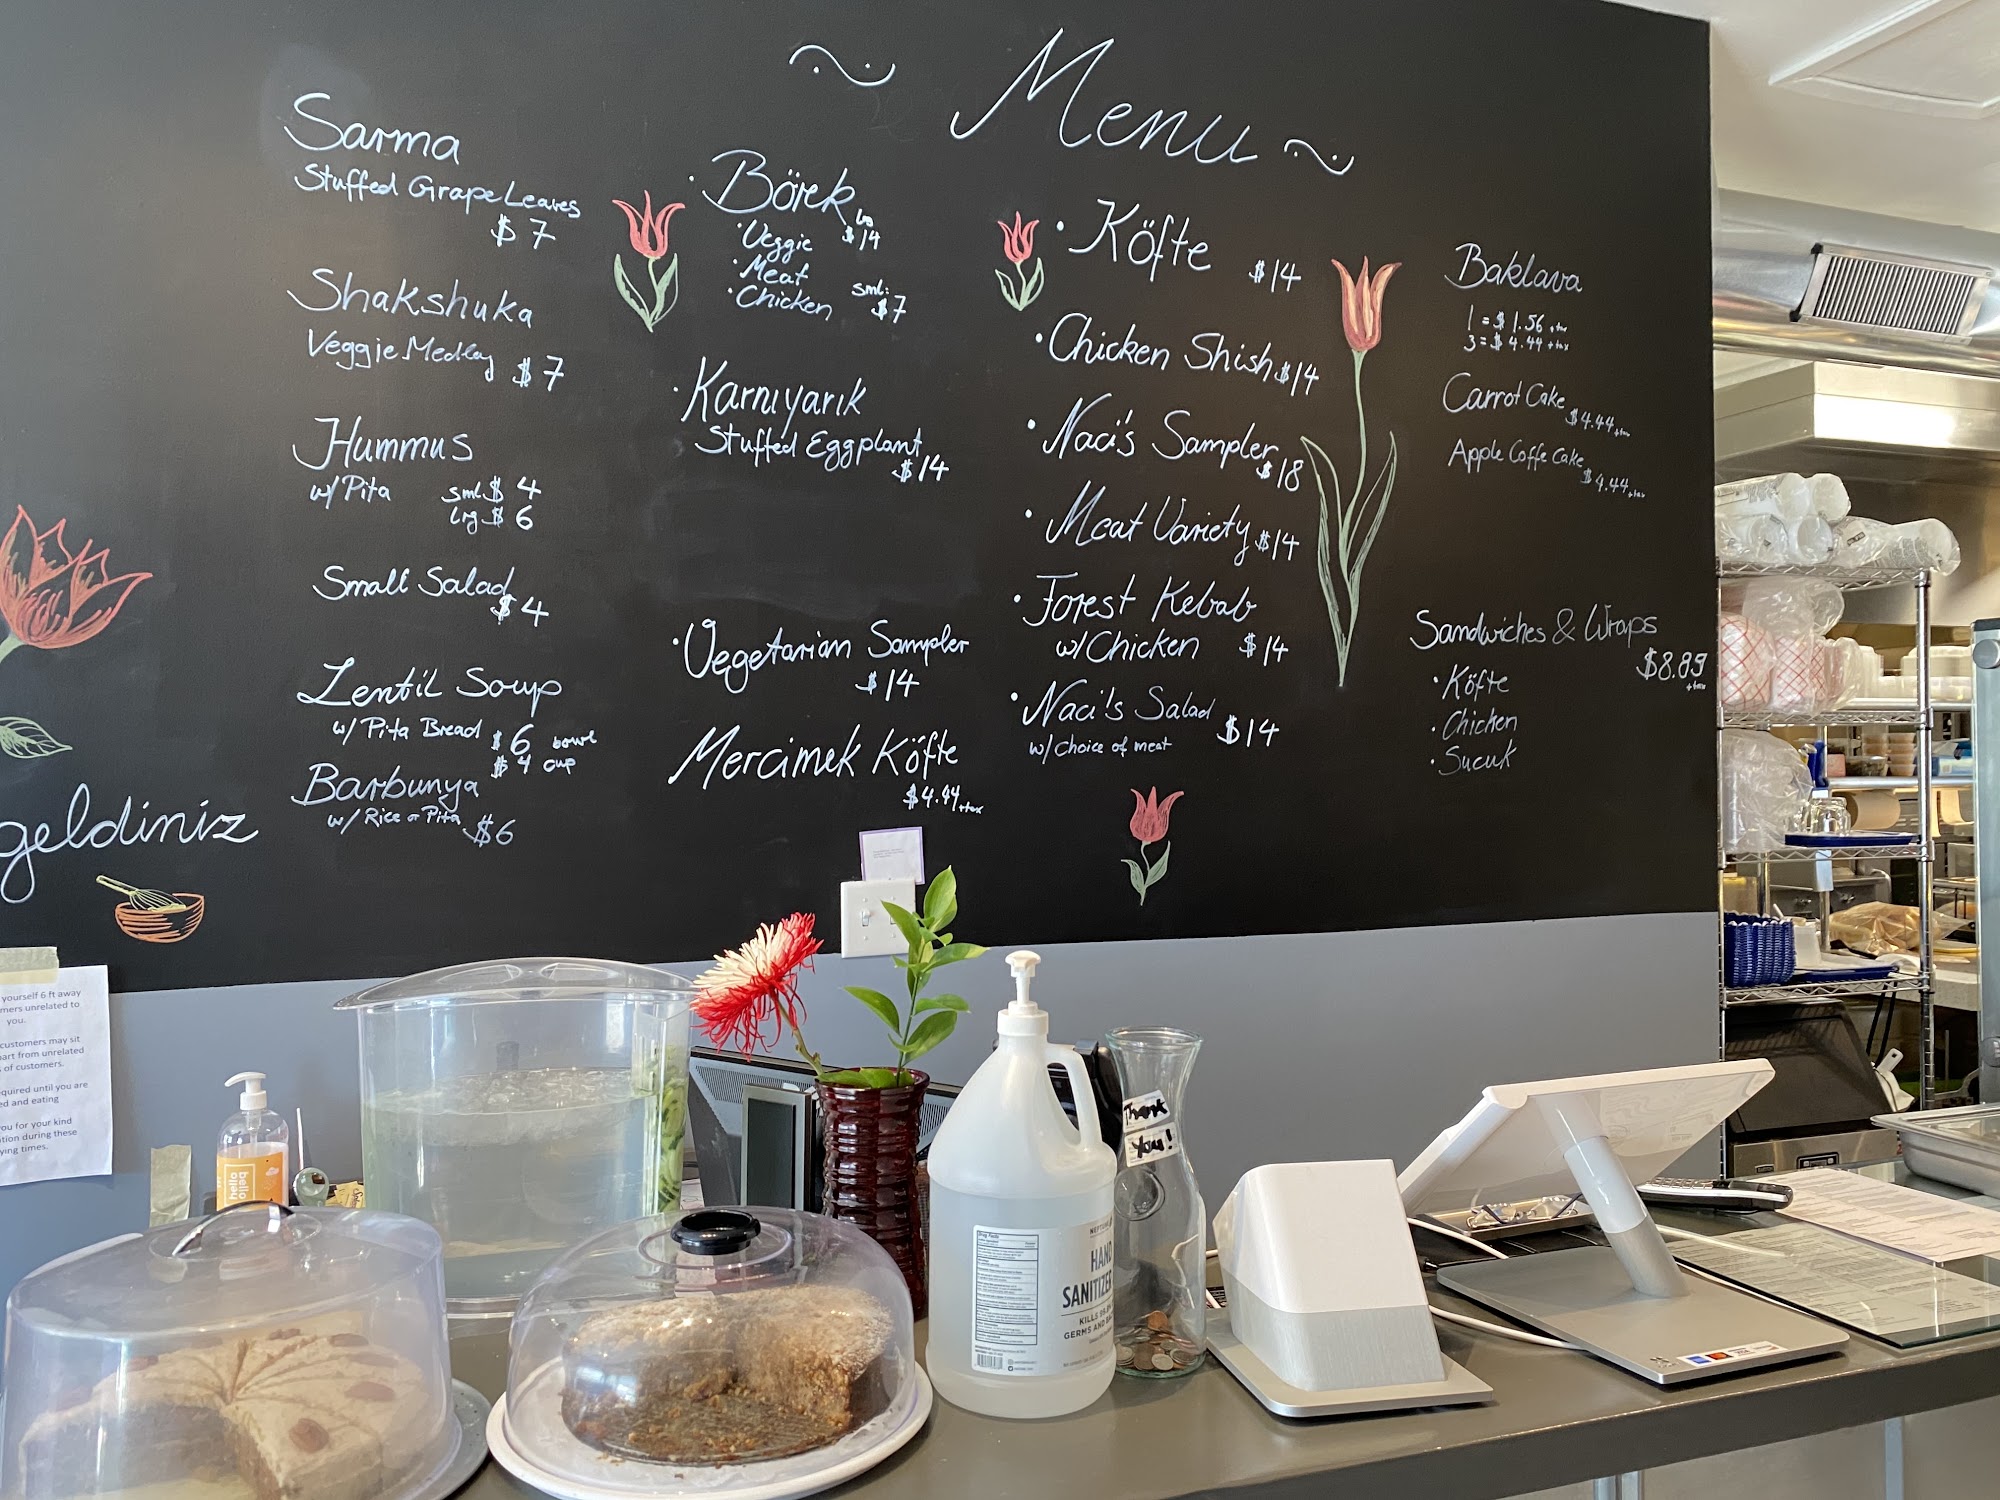 Menu
Sarma
Stuffed Grape Leaves
$7
Shakshuka
Veggie Medley $7
Hummus
w/ Pita sml $4
lrg $6
Small Salad
$4
Lentil Soup
w/ Pita Bread $6 bowl
$4 cup
Barbunya
w/ Rice or Pita $6
geldiniz
Börek
$14
Veggie
Meat
Chicken
sml:
$7
Karnıyarık
Stuffed Eggplant
$14
Vegetarian Sampler
$14
Mercimek Köfte
$4.44 +tax
Köfte $14
Chicken Shish $14
Naci's Sampler
$18
Meat Variety $14
Forest Kebab
w/ Chicken $14
Naci's Salad $14
w/ Choice of meat
Baklava
1 = $1.56 +tax
3 = $4.44 +tax
Carrot Cake
$4.44 +tax
Apple Coffe Cake
$4.44 +tax
Sandwiches & Wraps
$8.89
+tax
Köfte
Chicken
Sucuk
yourself 6 ft away
mers unrelated to
you.
customers may sit
part from unrelated
of customers.
quired until you are
ed and eating
you for your kind
ation during these
ying times.
hello
bello
Thank
You!
HAND
SANITIZER
KILLS 99.9
GERMS AND BA